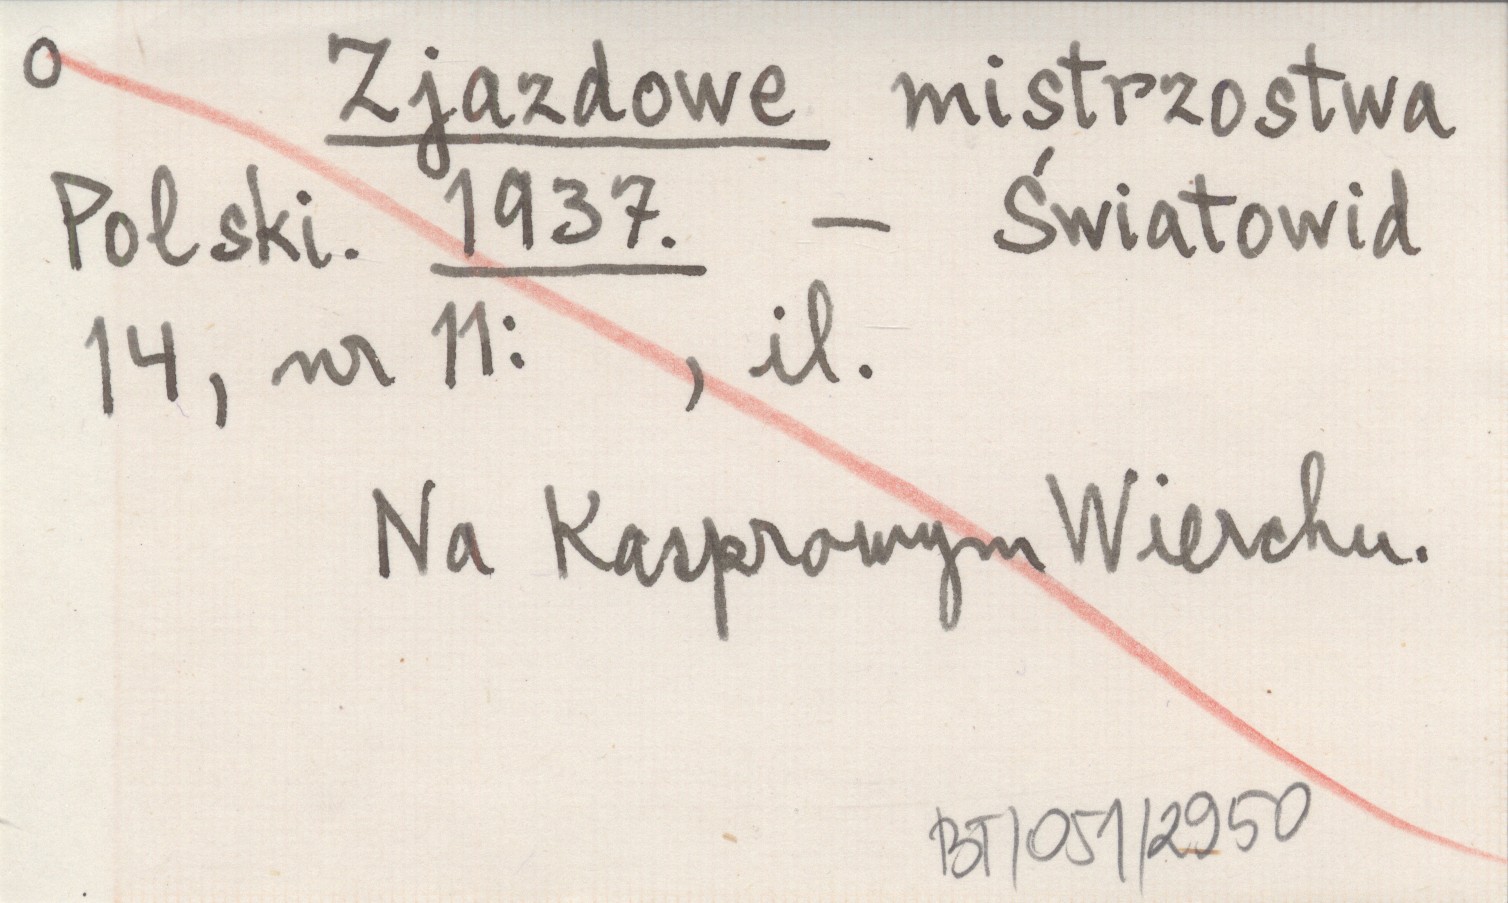 o Zjazdowe mistrzostwa
Polski. 1937. – Światowid
14, nr 11: , il.
Na Kasprowym Wierchu.
BT/051/2950